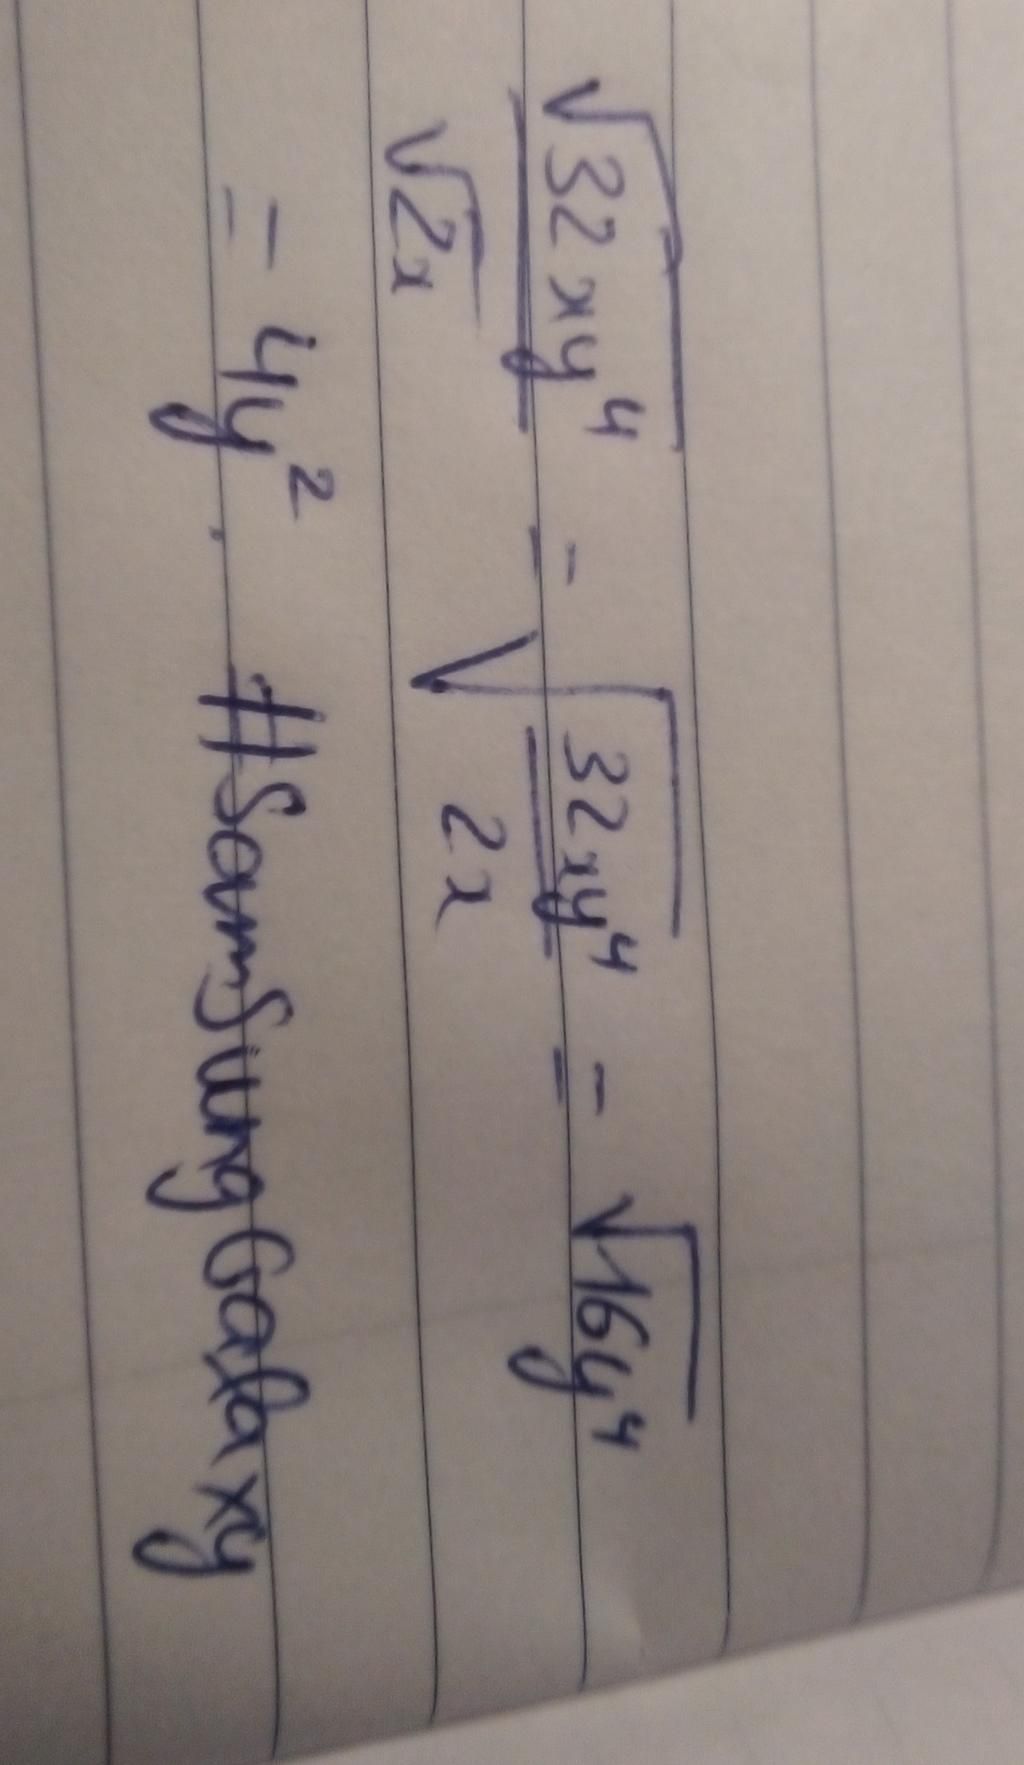 √32xy⁴ / √2x = √(32xy⁴ / 2x) = √16y⁴
= 4y². #SamSungGalaxy